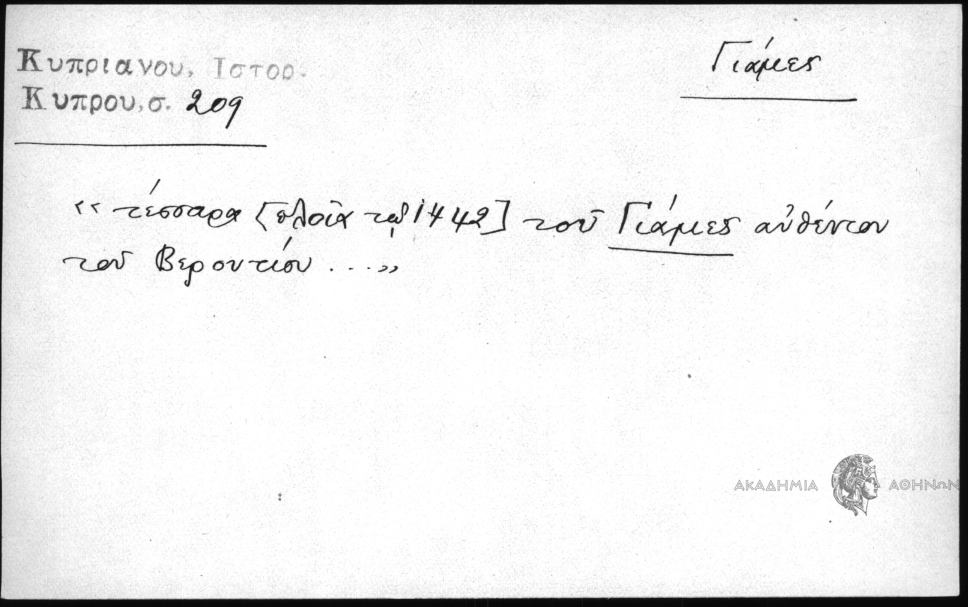 Κυπριανου, Ιστορ.
Κυπρου, σ. 209
Γιάμες
«τέσσαρα [πλοῖα τῷ 1442] τοῦ Γιάμες αὐθέντου
τοῦ Βερουτίου ...»
ΑΚΑΔΗΜΙΑ ΑΘΗΝΩΝ